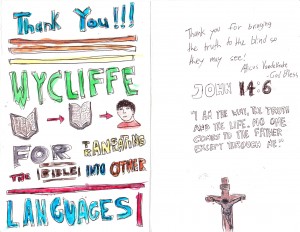 Thank You!!!
WYCLIFFE
FOR TRANSLATING
THE BIBLE INTO OTHER
LANGUAGES!
Thank you for bringing
the truth to the blind so
they may see!
-God Bless
JOHN 14:6
"I AM THE WAY, THE TRUTH
AND THE LIFE. NO ONE
COMES TO THE FATHER
EXCEPT THROUGH ME."